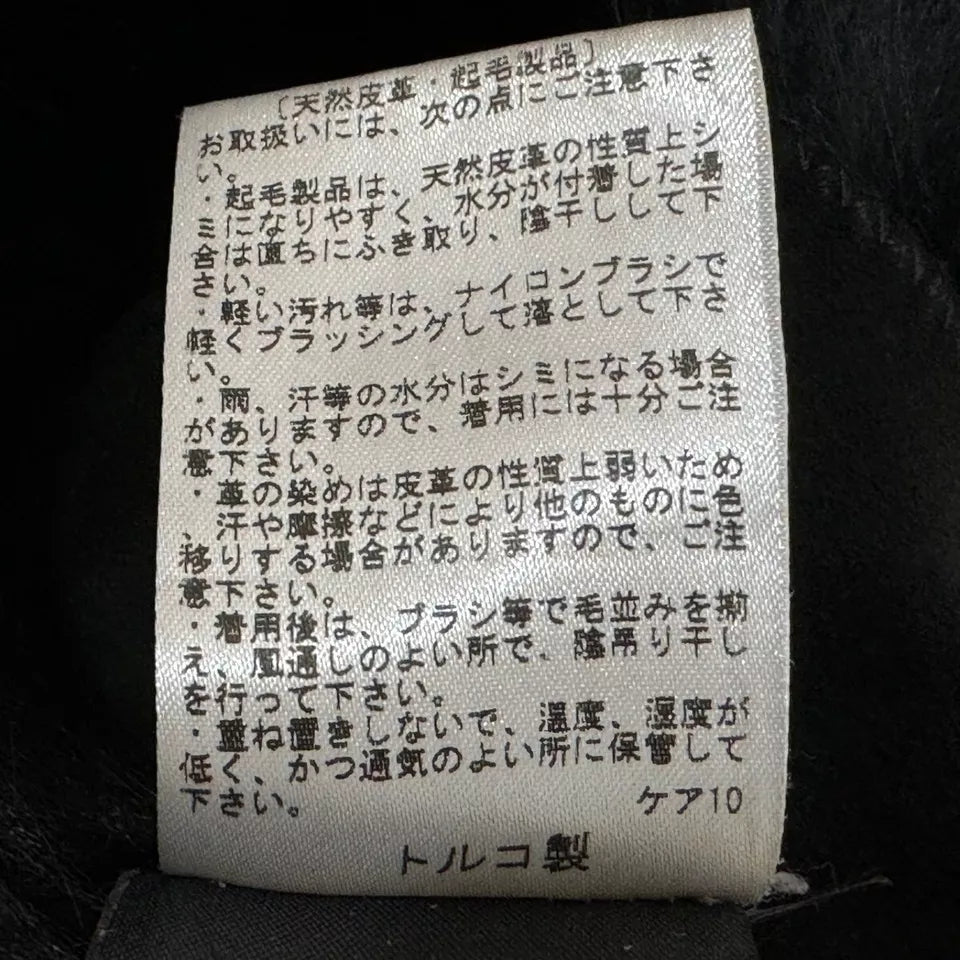 〔天然皮革・起毛製品〕
お取扱いには、次の点にご注意下さ
い。
・起毛製品は、天然皮革の性質上シ
ミになりやすく、水分が付着した場
合は直ちにふき取り、陰干しして下
さい。
・軽い汚れ等は、ナイロンブラシで
軽くブラッシングして落として下さ
い。
・雨、汗等の水分はシミになる場合
がありますので、着用には十分ご注
意下さい。
・革の染めは皮革の性質上弱いため
、汗や摩擦などにより他のものに色
移りする場合がありますので、ご注
意下さい。
・着用後は、ブラシ等で毛並みを揃
え、風通しのよい所で、陰吊り干し
を行って下さい。
・重ね置きしないで、温度、湿度が
低く、かつ通気のよい所に保管して
下さい。
ケア10
トルコ製